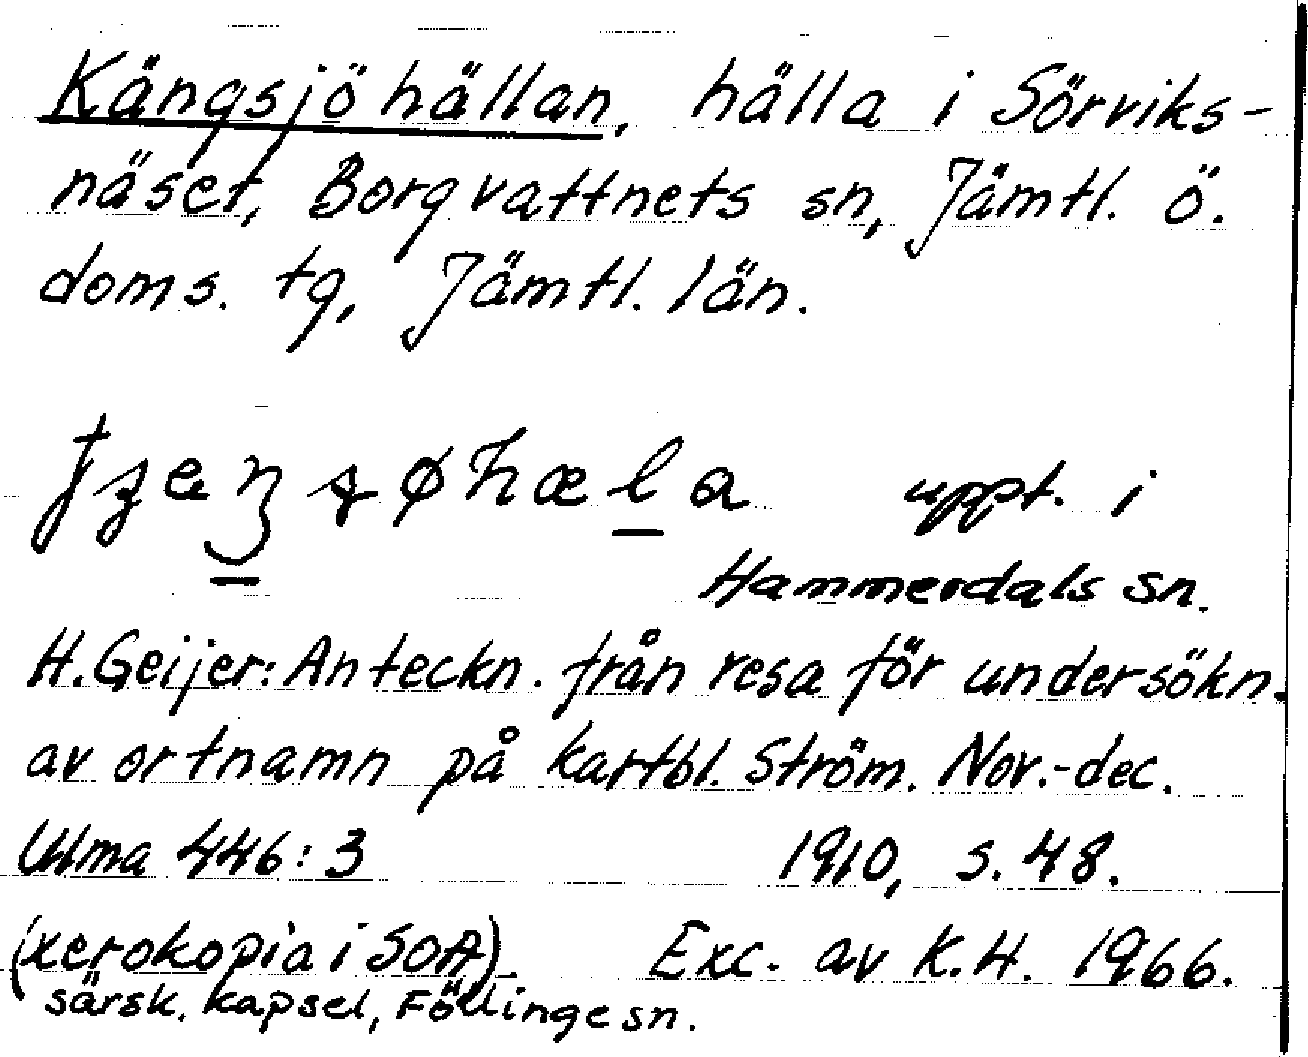 Kängsjöhällan, hälla i Sörviks-
näset, Borgvattnets sn, Jämtl. ö.
doms. tg, Jämtl. län.
uppt. i
Hammerdals sn.
H. Geijer: Anteckn. från resa för undersökn.
av ortnamn på kartbl. Ström. Nov.-dec.
Ulma 446:3 1910, s. 48.
(xerokopia i SOA) Exc. av K.H. 1966.
särsk. kapsel, Föllinge sn.